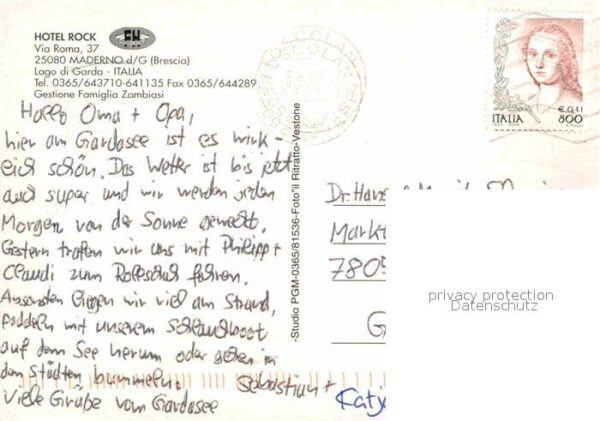 HOTEL ROCK
Via Roma, 37
25080 MADERNO d/G (Brescia)
Lago di Garda - ITALIA
Tel. 0365/643710-641135 Fax 0365/644289
Gestione Famiglia Zambiasi
Hallo Oma + Opa,
hier am Gardasee ist es wirk-
lich schön. Das Wetter ist bis jetzt
auch super und wir werden jeden
Morgen von der Sonne geweckt.
Gestern trafen wir uns mit Philipp +
Claudi zum Rollschuh fahren.
Ansonsten liegen wir viel am Strand,
paddeln mit unserem Schlauchboot
auf dem See herum oder gehen in
den Städten bummeln.
Viele Grüße vom Gardasee
Sebastian +
Katj
-Studio PGM-0365/81536-Foto"il Ritratto-Vestone
TOSCOLANO
ITALIA
€ 0,41
800
Dr. Hans
Markt
7805
G
privacy protection
Datenschutz